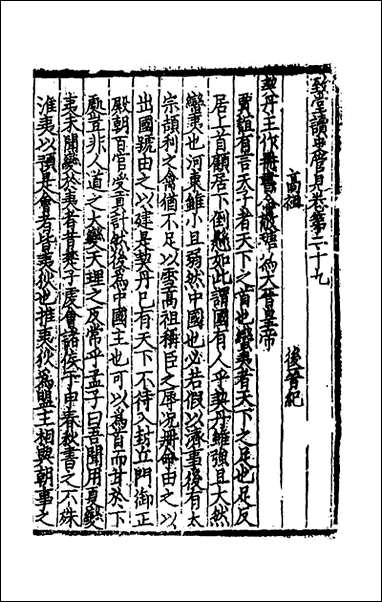 致堂讀史管見卷第二十九
高祖　後晉紀
契丹主作冊書命敬瑭為大晉皇帝
賈誼有言天子者天下之首也蠻夷者天下之足也足反
居上首顧居下倒懸如此謂國有人乎契丹雖強且大然
蠻夷也河東雖小且弱然中國也必若假以濟事後有太
宗頡利之禽猶不足以雪高祖稱臣之辱況冊命由之以
出國號由之以建是契丹已有天下不待入封丘門御正
殿朝百官受貢計然後為中國主也可以為首而甘於下
處豈非人道之大變天理之反常乎孟子曰吾聞用夏變
夷未聞變於夷者昔楚子虔會諸侯于申春秋書之不殊
淮夷以預是會者皆夷狄也推夷狄為盟主相與朝事之